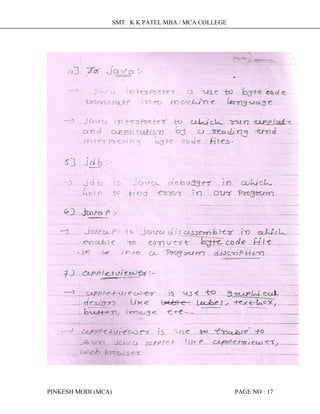 SMT. K K PATEL MBA / MCA COLLEGE
4] For Java :-
→ Java interpreter is use to byte code
translate into machine language
→ Java interpreter to which run applate
and application by a reading and
interpreting byte code files.
5] jdb :-
→ jdb is java debugger in which
help to find error in our Program.
6) Javap :-
→ Javap is java disassembler in which
enable to convert byte code file
into a Program discription
7) appletviewer :-
→ appletviewer is use to graphical
design like label, textbox,
button, image etc.
→ appletviewer is use to enable to
run Java applet like appletviewer,
web browser.
PINKESH MODI (MCA) PAGE NO : 17